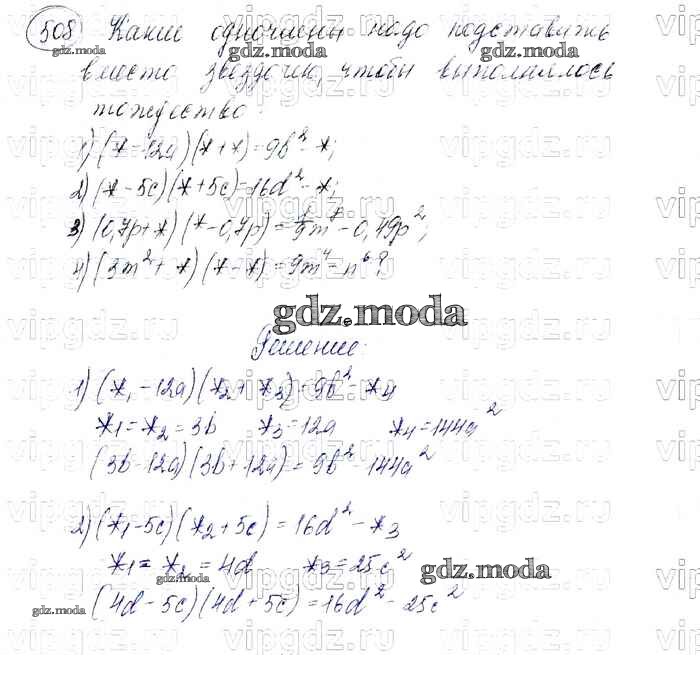 508 Какие одночлены надо подставить
вместо звёздочки, чтобы выполнялось
тождество:
1) (* - 12a)(* + *) = 9b² - *;
2) (* - 5c)(* + 5c) = 16d² - *;
3) (0,7p + *)(* - 0,7p) = 1/9 m⁸ - 0,49p²;
4) (3m² + *)(* - *) = 9m⁴ - n⁶?
gdz.moda
Решение:
1) (*₁ - 12a)(*₂ + *₃) = 9b² - *₄
*₁ = *₂ = 3b *₃ = 12a *₄ = 144a²
(3b - 12a)(3b + 12a) = 9b² - 144a²
2) (*₁ - 5c)(*₂ + 5c) = 16d² - *₃
*₁ = *₂ = 4d *₃ = 25c²
(4d - 5c)(4d + 5c) = 16d² - 25c²
gdz.moda
vipgdz.ru